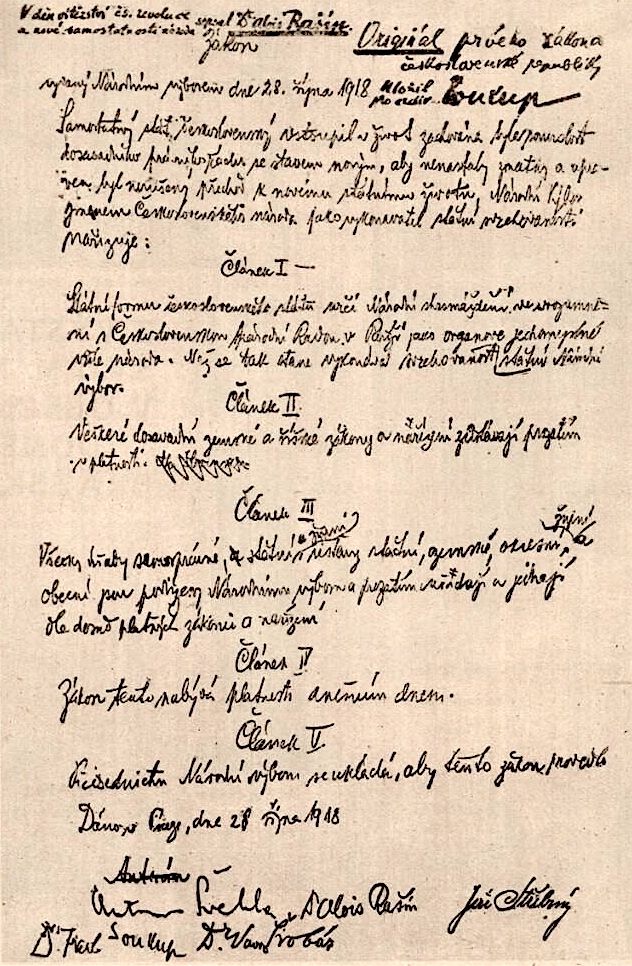 V den vítězství čs. revoluce
a nové samostatnosti národa sepsal Dr Alois Rašín.
zákon
Originál prvého zákona
československé republiky
vydaný Národním výborem dne 28. října 1918 uložil
po sobě Soukup
Samostatný stát Československý vstoupil v život zachována byla souvislost
dosavadního právního řádu se stavem novým, aby nenastaly zmatky a upra-
ven byl nerušený přechod k novému státnímu životu, Národní Výbor
jménem Československého národa jako vykonavatel státní svrchovanosti
nařizuje:
Článek I —
Státní formu československého státu určí Národní shromáždění ve srozumě-
ní s Československou Národní Radou v Paříži jako orgánové jednomyslné
vůle národa. Než se tak stane vykonává svrchovanost státní Národní
výbor.
Článek II.
Veškeré dosavadní zemské a říšské zákony a nařízení zůstávají prozatím
v platnosti.
Článek III
Všecky úřady samosprávné, státní a župní ústavy státní, zemské, okresní, a
župní
obecní jsou podřízeny Národnímu výboru a prozatím úřadují a jednají
dle dosud platných zákonů a nařízení
Článek IV
Zákon tento nabývá platnosti dnešním dnem.
Článek V
Předsednictvu Národní výboru se ukládá, aby tento zákon provedlo
Dáno v Praze, dne 28 října 1918
Antonín
Antonín Švehla Dr Alois Rašín Jiří Stříbrný
Dr. Frant Soukup Dr. Vavro Šrobár